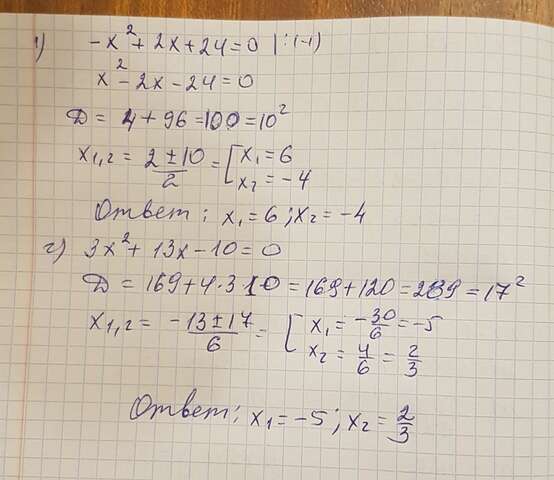 1) -x² + 2x + 24 = 0 | : (-1)
x² - 2x - 24 = 0
D = 4 + 96 = 100 = 10²
x₁,₂ = (2 ± 10)/2 = [ x₁ = 6
x₂ = -4
Ответ: x₁ = 6; x₂ = -4
2) 3x² + 13x - 10 = 0
D = 169 + 4·3 10 = 169 + 120 = 289 = 17²
x₁,₂ = (-13 ± 17)/6 = [ x₁ = -30/6 = -5
x₂ = 4/6 = 2/3
Ответ: x₁ = -5; x₂ = 2/3